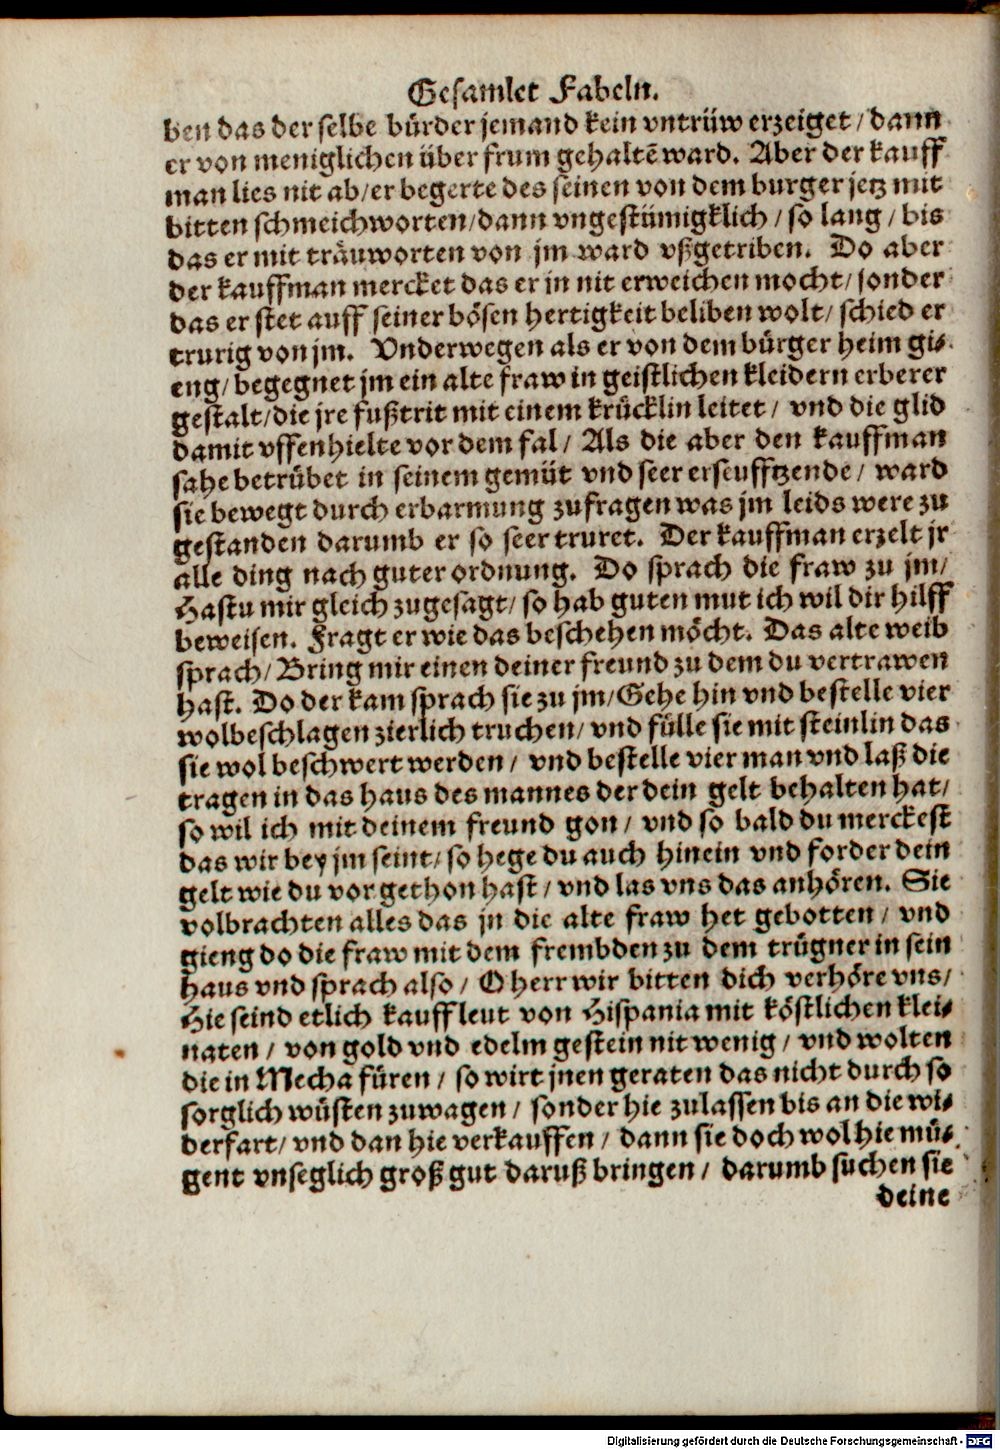 Gesamlet Fabeln.
ben das der selbe bürder jemand kein vntrüw erzeiget / dann
er von meniglichen über frum gehaltē ward. Aber der kauff
man lies nit ab/er begerte des seinen von dem burger jetz mit
bitten schmeichworten/dann vngestümigklich / so lang / bis
das er mit träuworten von jm ward vßgetriben. Do aber
der kauffman mercket das er in nit erweichen mocht/ sonder
das er stet auff seiner bösen hertigkeit beliben wolt/ schied er
trurig von jm. Vnderwegen als er von dem bürger heim gi⸗
eng/ begegnet jm ein alte fraw in geistlichen kleidern erberer
gestalt/die jre fußtrit mit einem krücklin leitet / vnd die glid
damit vffenhielte vor dem fal / Als die aber den kauffman
sahe betrübet in seinem gemüt vnd seer erseufftzende / ward
sie bewegt durch erbarmung zufragen was jm leids were zu
gestanden darumb er so seer truret. Der kauffman erzelt jr
alle ding nach guter ordnung. Do sprach die fraw zu jm/
Hastu mir gleich zugesagt/ so hab guten mut ich wil dir hilff
beweisen. Fragt er wie das beschehen möcht. Das alte weib
sprach/ Bring mir einen deiner freund zu dem du vertrawen
hast. Do der kam sprach sie zu jm/Gehe hin vnd bestelle vier
wolbeschlagen zierlich truchen/ vnd fülle sie mit steinlin das
sie wol beschwert werden / vnd bestelle vier man vnd laß die
tragen in das haus des mannes der dein gelt behalten hat/
so wil ich mit deinem freund gon / vnd so bald du merckest
das wir bey jm seint/ so hege du auch hinein vnd forder dein
gelt wie du vor gethon hast / vnd las vns das anhören. Sie
volbrachten alles das jn die alte fraw het gebotten / vnd
gieng do die fraw mit dem frembden zu dem trügner in sein
haus vnd sprach also / O herr wir bitten dich verhöre vns/
Hie seind etlich kauffleut von Hispania mit köstlichen klei⸗
naten / von gold vnd edelm gestein nit wenig / vnd wolten
die in Mecha füren / so wirt jnen geraten das nicht durch so
sorglich wüsten zuwagen / sonder hie zulassen bis an die wi⸗
derfart/ vnd dan hie verkauffen / dann sie doch wol hie mü⸗
gent vnseglich groß gut daruß bringen / darumb suchen sie
deine
Digitalisierung gefördert durch die Deutsche Forschungsgemeinschaft - DFG